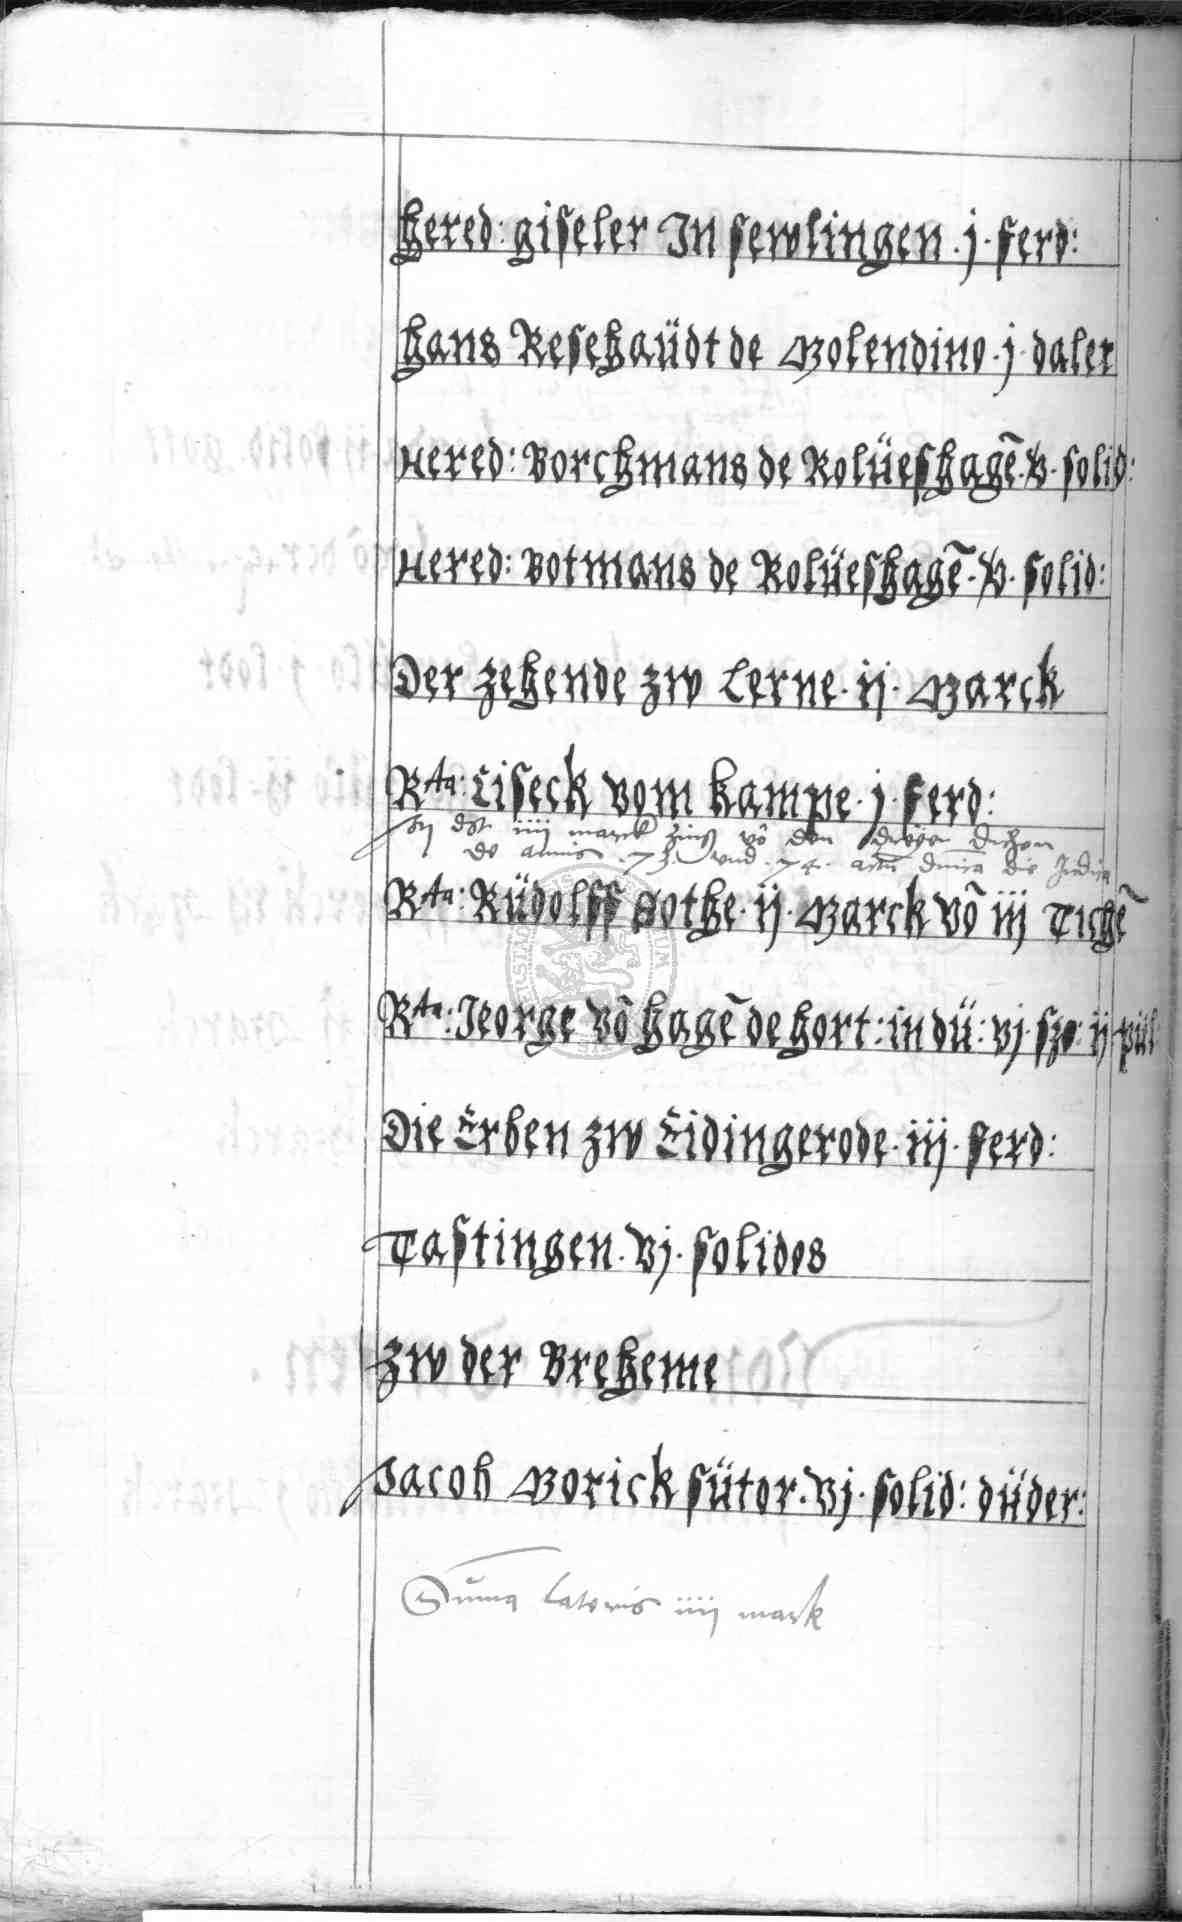 hered: giseler In sewlingen · j · ferd:
hans Resehaüdt de Molendino · j · daler
Hered: Borchmans de Rolüeshagẽ · v · solid:
Hered: Botmans de Rolüeshagẽ · v · solid:
Der zehende zw Lerne · ij · Marck
Rta: Liseck vom kampe · j · ferd:
dt iiij marck zins võ den dreyen dichen
de annis · 73 · vnd · 74 · actũ die Judica
Rta: Rüdolff Bothe · ij · Marck võ iij Tichẽ
Rta: Jeorge võ hagẽ de hort: in dü: vj · szo: ij · pül
Die Erben zw Eidingerode · iij · ferd:
Tastingen · vj · solidos
zw der Breheme
Jacob Morick sütor · vj · solid: düder:
Sum̃a Lateris iiij mark